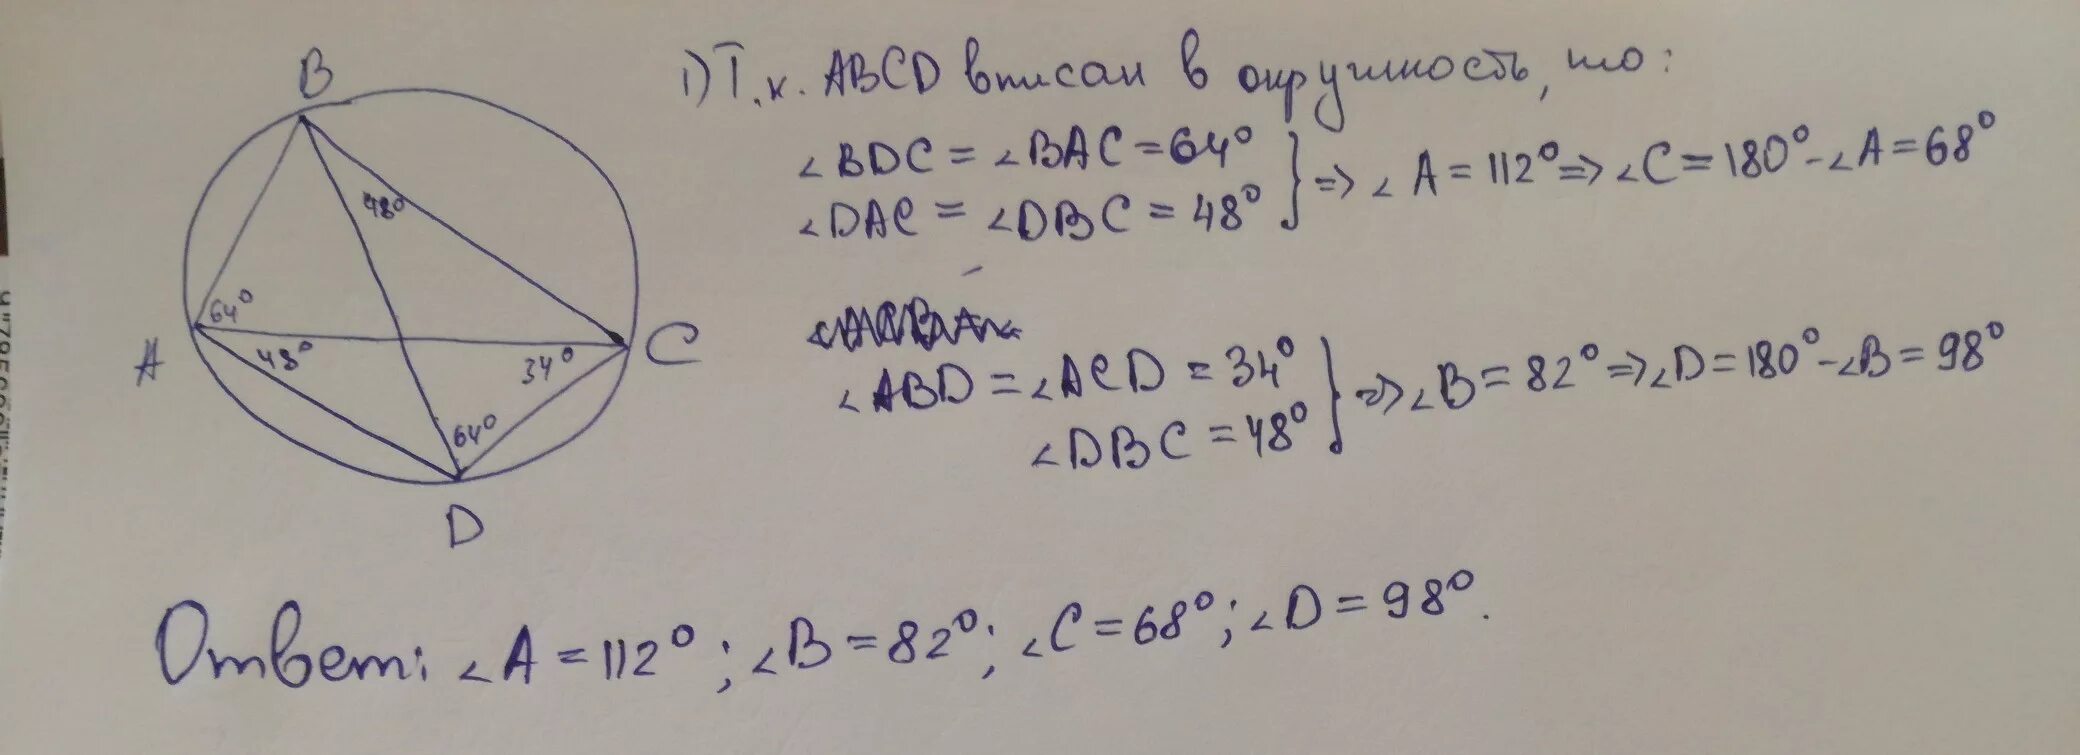 B
48°
64°
A
48°
34°
C
64°
D
1) Т.к. ABCD вписан в окружность, то:
∠BDC = ∠BAC = 64°
∠DAC = ∠DBC = 48°
} => ∠A = 112° => ∠C = 180° - ∠A = 68°
∠ABD = ∠ACD = 34°
∠DBC = 48°
} => ∠B = 82° => ∠D = 180° - ∠B = 98°
Ответ: ∠A = 112°; ∠B = 82°; ∠C = 68°; ∠D = 98°.